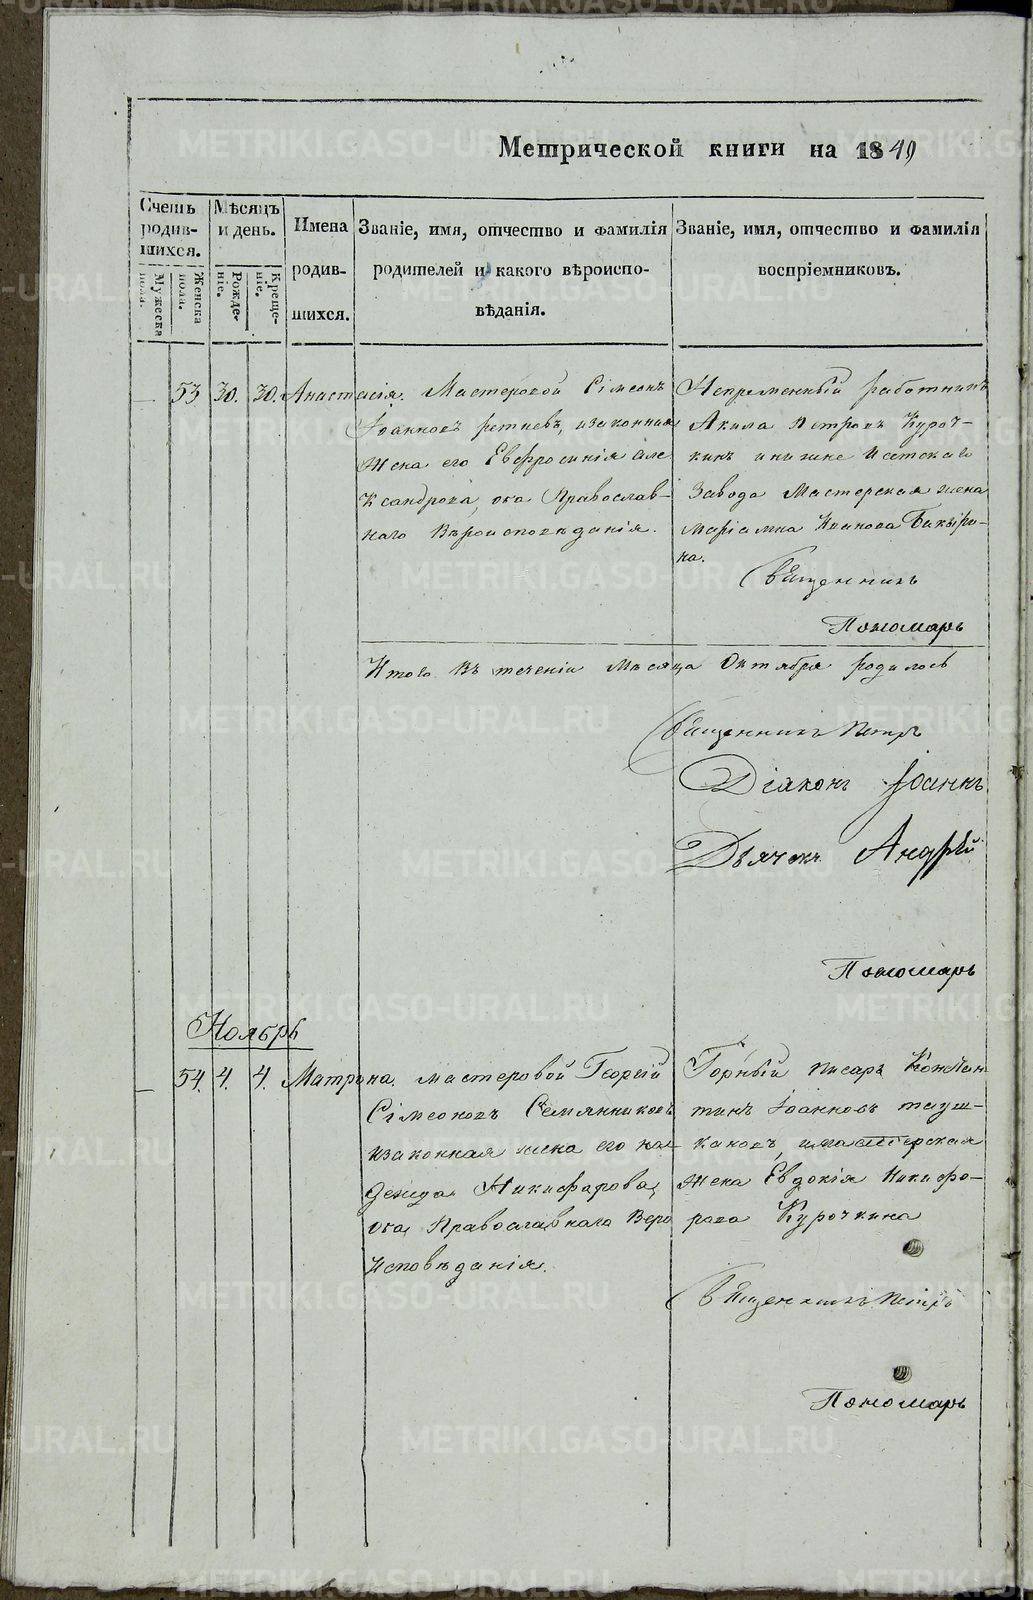 Метрической книги на 1849
Счетъ родив-шихся.
Мужеска пола.
Женска пола.
Мѣсяцъ и день.
Рожде-ніе.
Креще-ніе.
Имена родив-шихся.
Званіе, имя, отчество и фамилія
родителей и какого вѣроиспо-
вѣданія.
Званіе, имя, отчество и фамилія
воспріемниковъ.
— 53 30. 30. Анастасія. Мастеровой Сімеонъ
Іоанновъ изаконная
Жена его Евфросинія Але
ксандрова, оба Православ-
наго Вѣроисповѣданія.
Непременный работникъ
Акила Петровъ Куроч-
кинъ инижне Исетскаго
Завода Мастерская жена
Маріамна Иванова
ва.
Священникъ
Пономарь
Итого въ теченіи Месяца Октября родилось
Священникъ Петръ
Діаконъ Іоаннъ
Дьячекъ Андрѣй
Пономарь
Ноябрь
— 54. 4. 4. Матрона. мастеровой Георгій
Сімеоновъ Семянниковъ
изаконная жена его На
дежда Никифорова,
оба Православнаго Веро
Исповѣданія.
Горный писарь Констан
тинъ Іоанновъ тауш-
кановъ, имастерская
Жена Евдокія Никифо-
рова Курочкина
Священникъ Петръ
Пономарь
METRIKI.GASO-URAL.RU